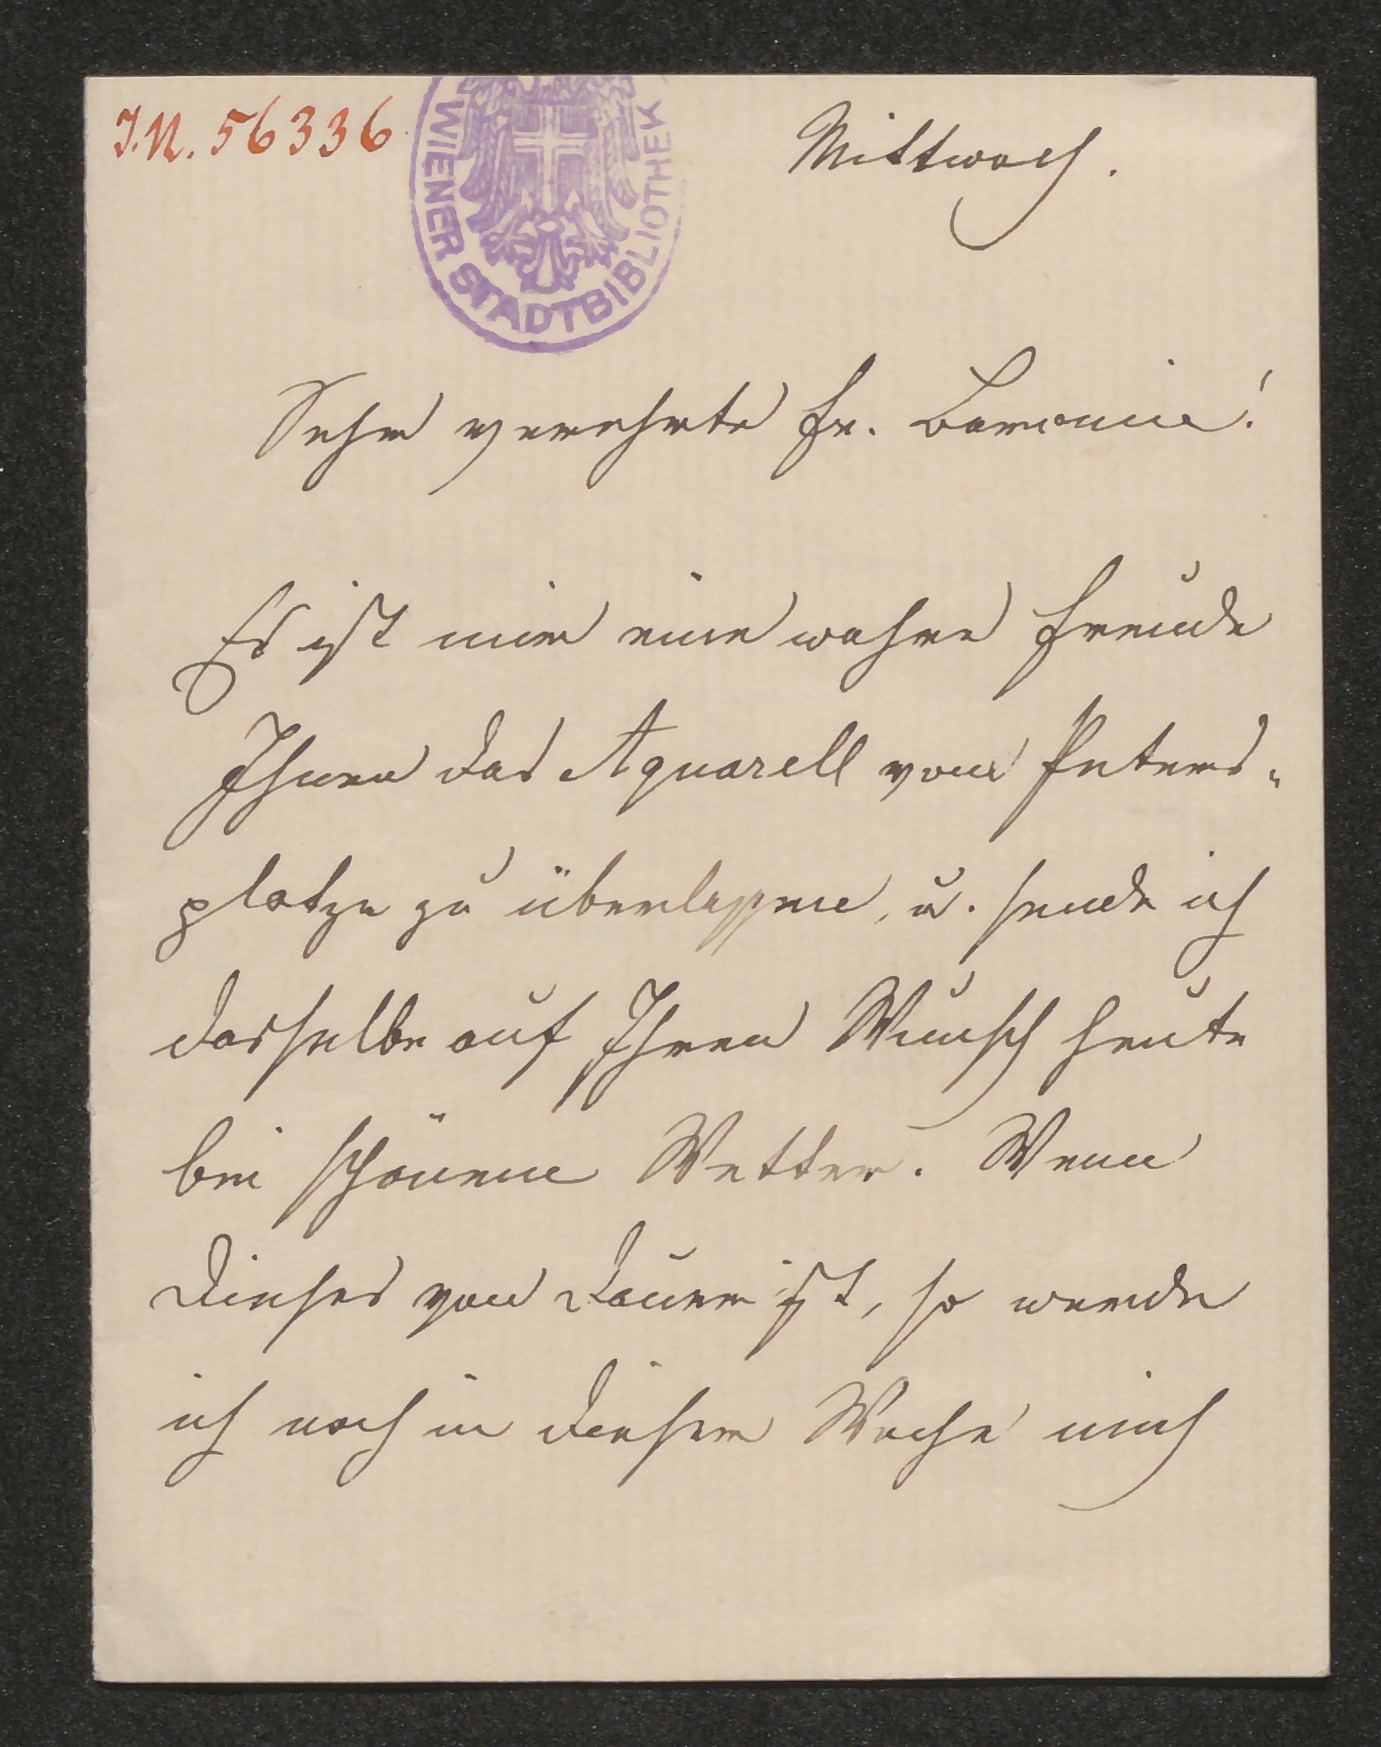 J.N. 56336
WIENER STADTBIBLIOTHEK
Mittwoch.
Sehr verehrte Fr. Baronin!
Es ist mir eine wahre Freude
Ihnen das Aquarell vom Peters-
platze zu überlassen, u. sende ich
dasselbe auf Ihren Wunsch heute
bei schönem Wetter. Wenn
dieses von Dauer ist, so werde
ich noch in dieser Woche mich